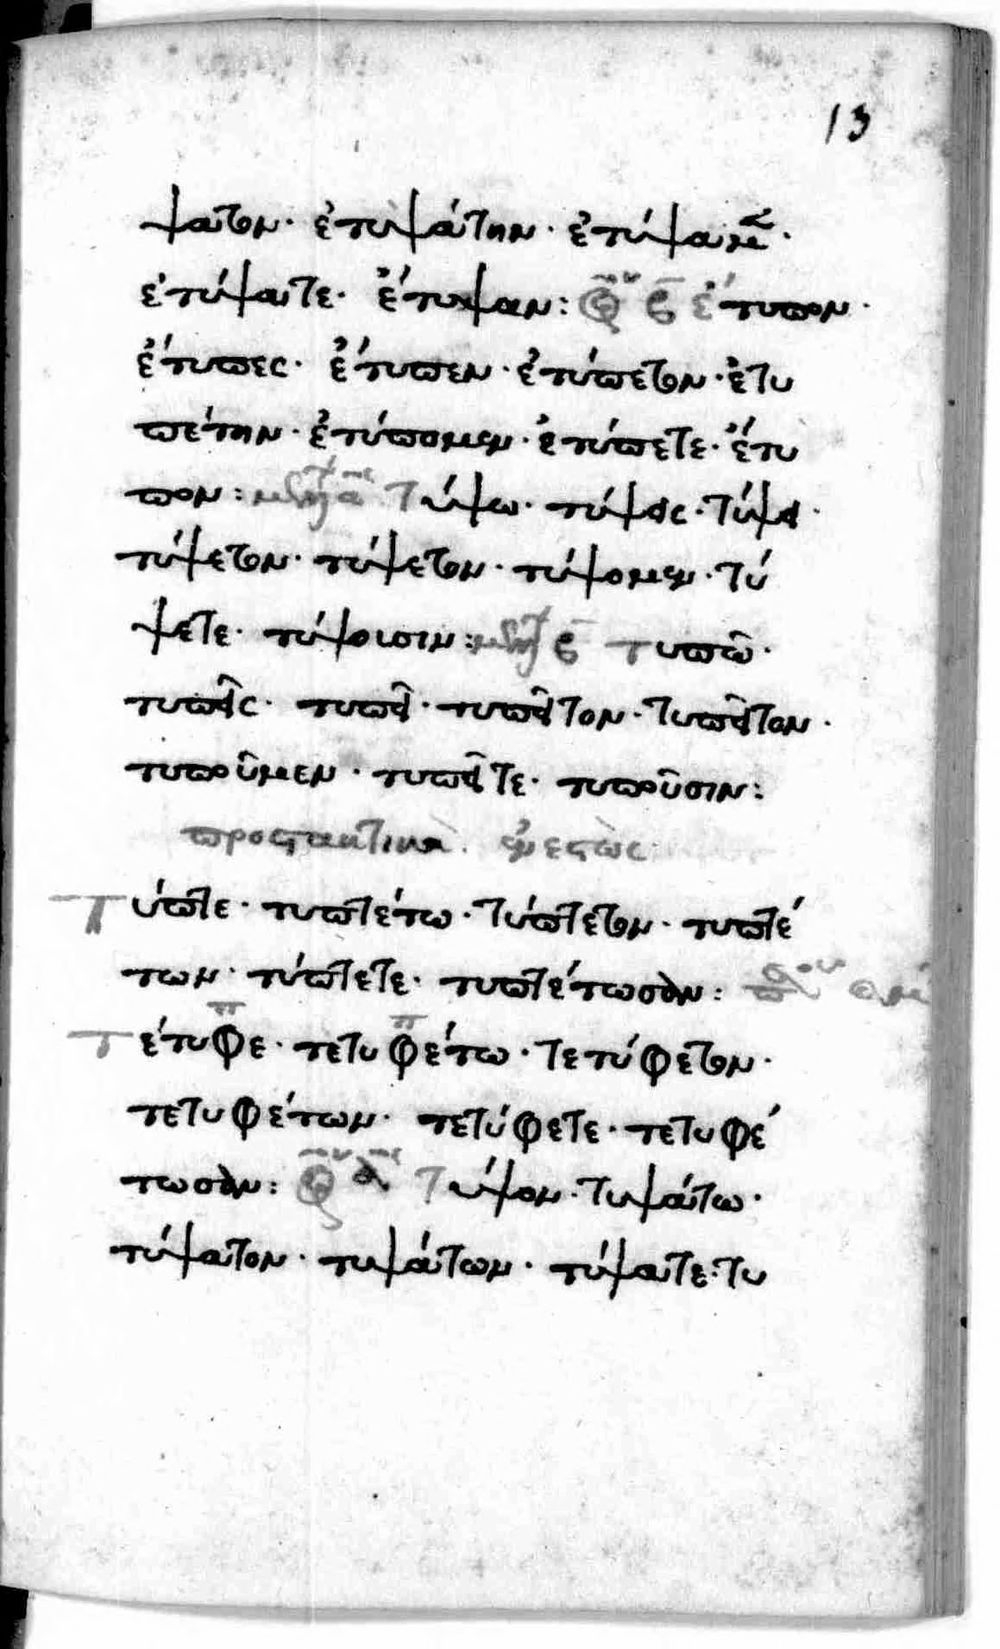 13
ψατον· ἐτυψάτην· ἐτύψαμε͂ν·
ἐτύψατε· ἔτυψαν: β ἔτυπον·
ἔτυπες· ἔτυπεν· ἐτύπετον· ἐτυ
πέτην· ἐτύπομεν· ἐτύπετε· ἔτυ
πον: α Τύψω· τύψεις· τύψει·
τύψετον· τύψετον· τύψομεν· τύ
ψετε· τύψουσιν: β τυπῶ·
τυπεῖς· τυπεῖ· τυπεῖτον· τυπεῖτον·
τυποῦμεν· τυπεῖτε· τυποῦσιν:
προστακτικὰ. ἐνεστὼς
Τύπτε· τυπτέτω· τύπτετον· τυπτέ
των· τύπτετε· τυπτέτωσαν:
Τέτυφε· τετυφέτω· τετύφετον·
τετυφέτων· τετύφετε· τετυφέ
τωσαν: α Τύψον· τυψάτω·
τύψατον· τυψάτων· τύψατε· τυ